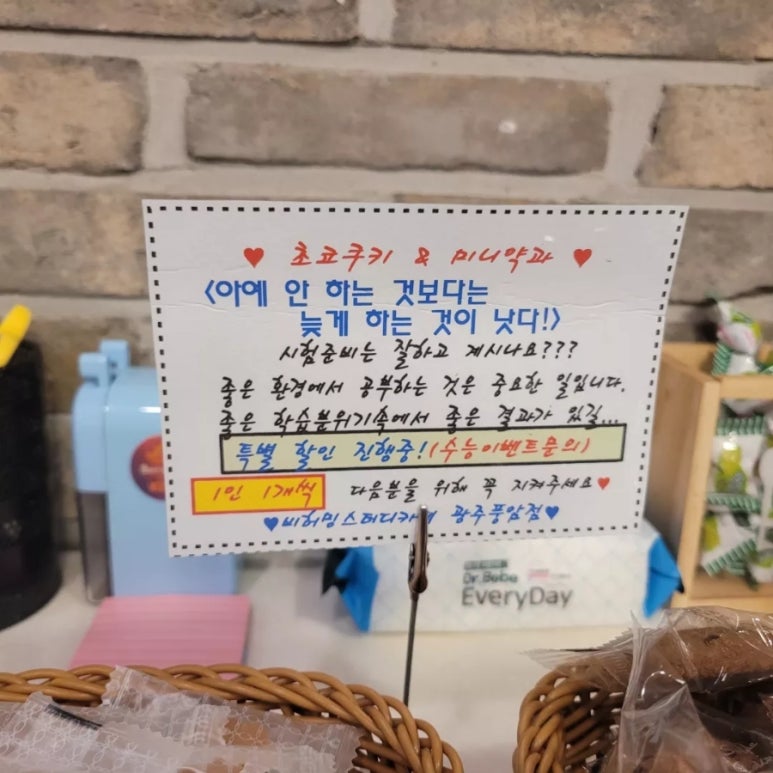 ♥ 초코쿠키 & 미니약과 ♥
<아예 안 하는 것보다는
늦게 하는 것이 낫다!>
시험준비는 잘하고 계시나요???
좋은 환경에서 공부하는 것은 중요한 일입니다.
좋은 학습분위기속에서 좋은 결과가 있길...
특별 할인 진행중!(수능이벤트문의)
1인 1개씩 다음분을 위해 꼭 지켜주세요♥
♥비허밍스터디카페 광주풍암점♥
Dr.Bebe
EveryDay